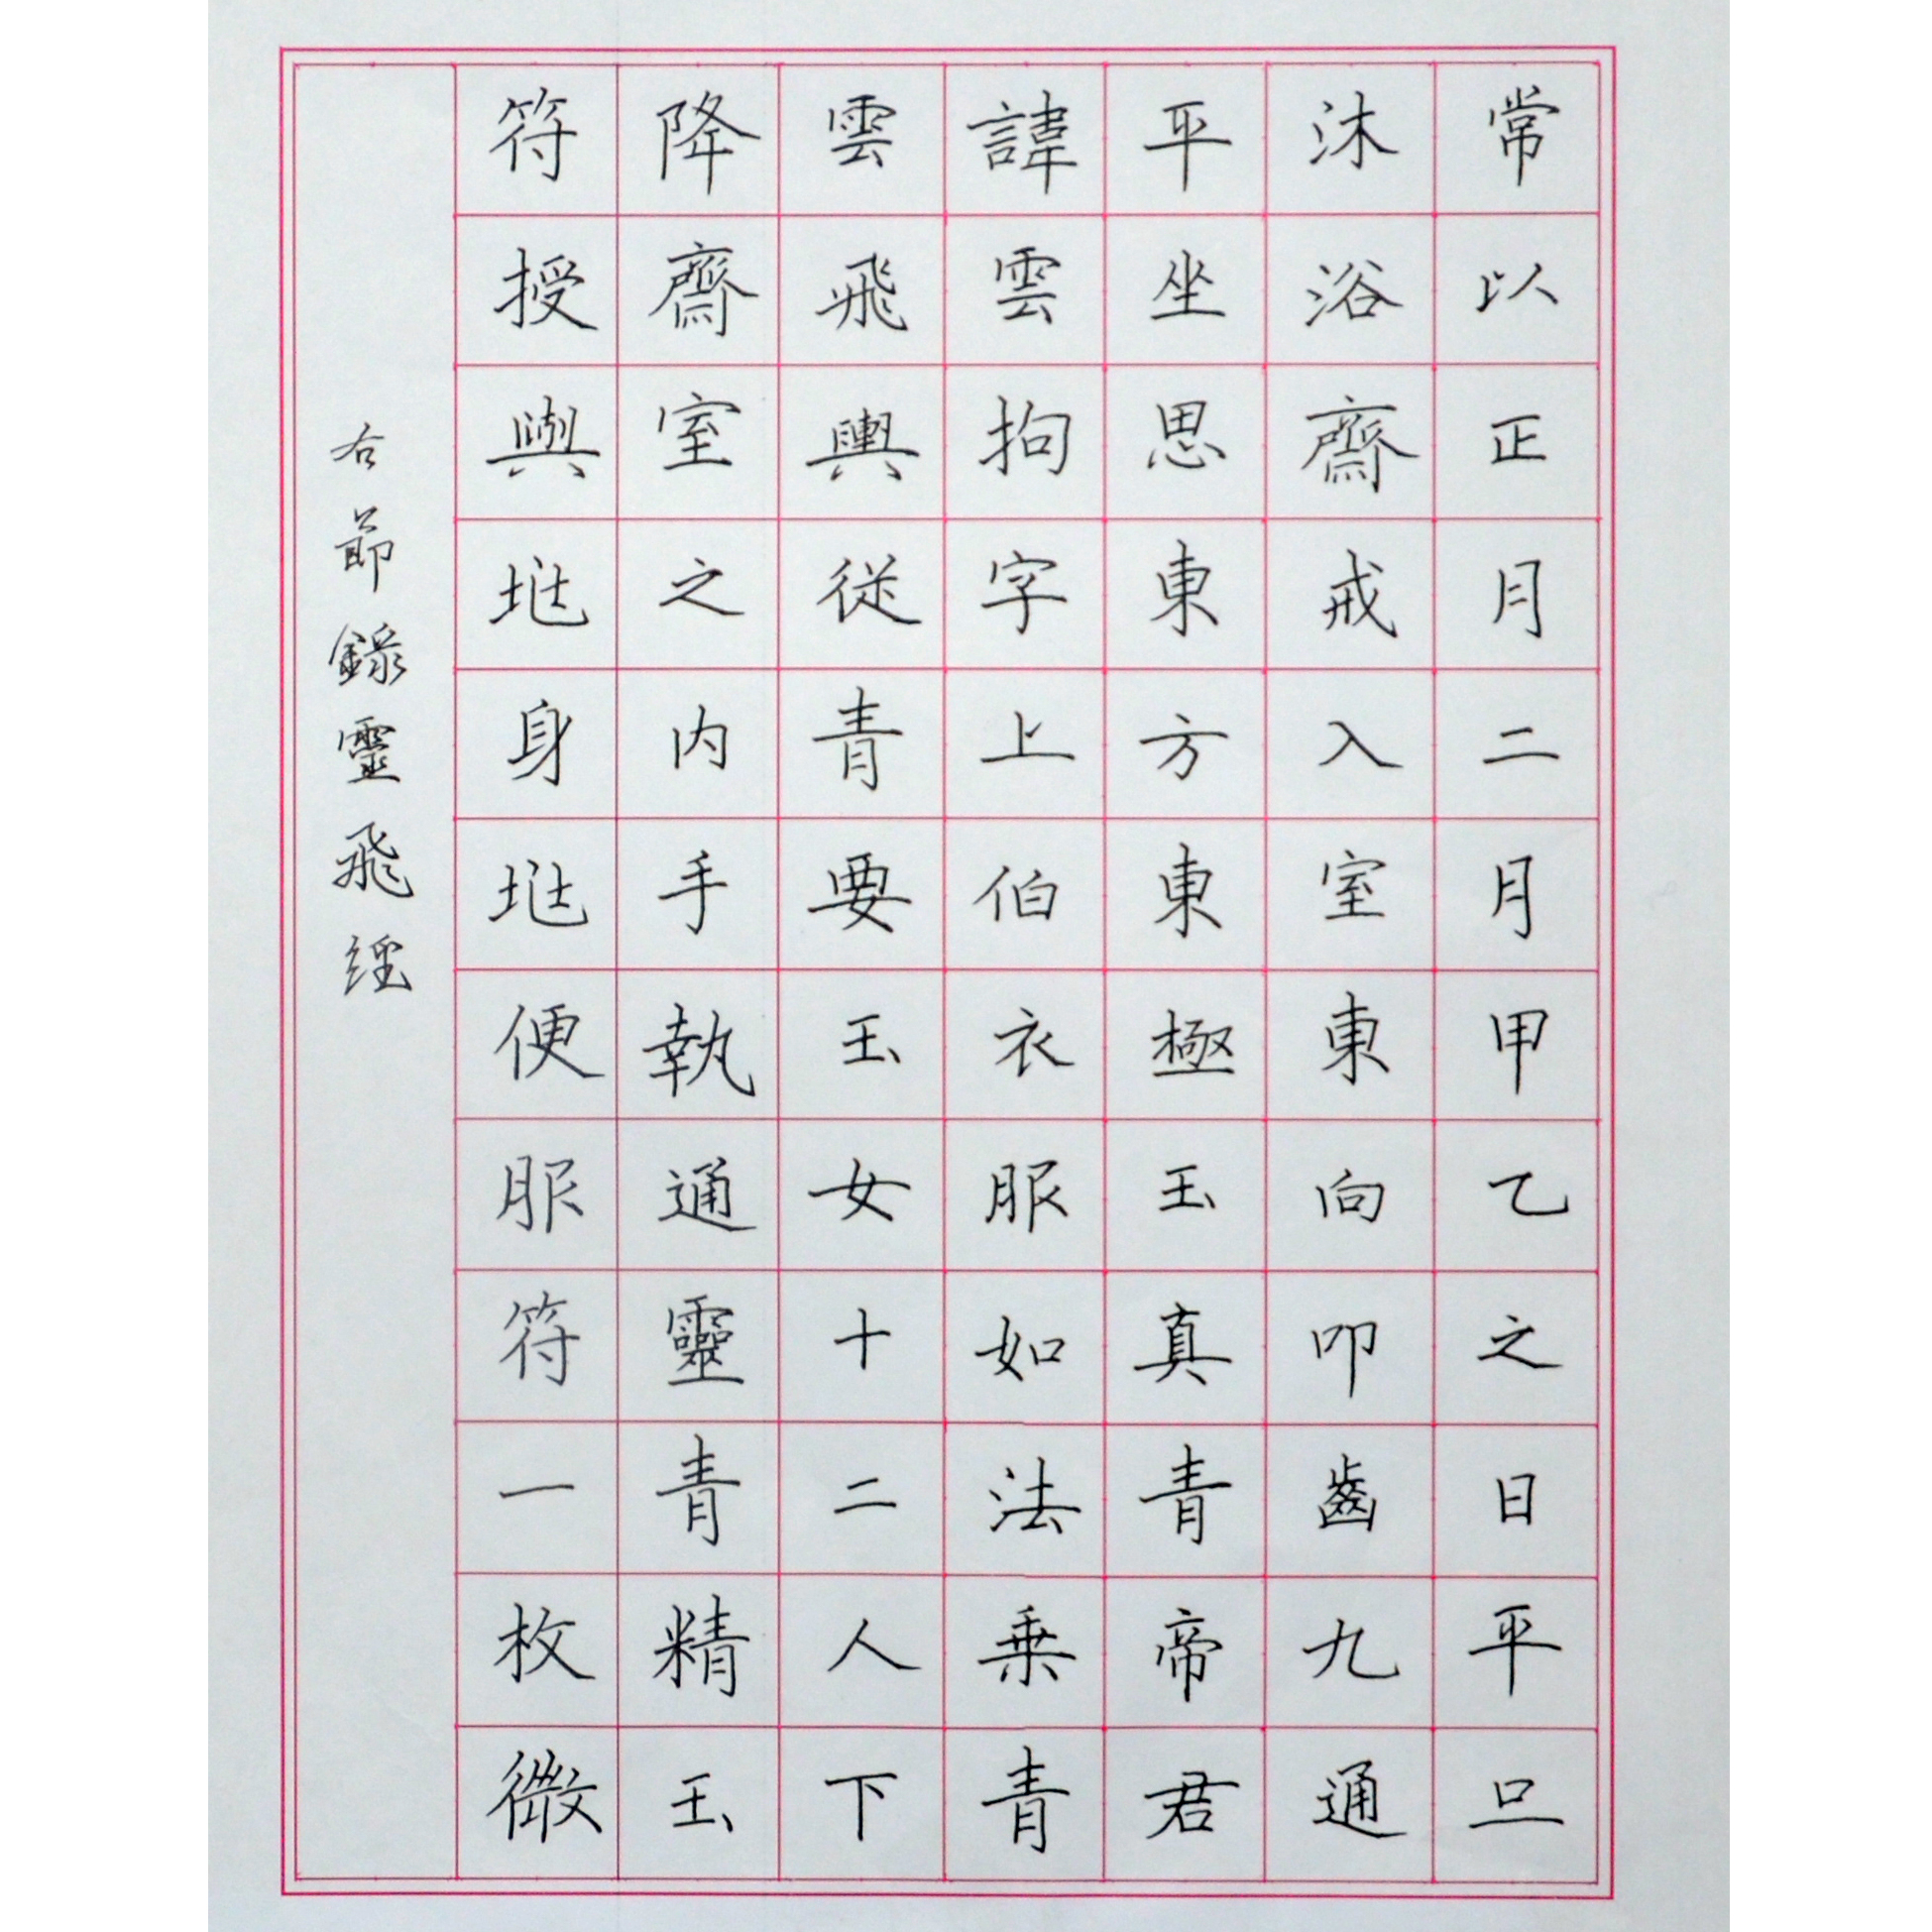 常以正月二月甲乙之日平旦
沐浴齋戒入室東向叩齒九通
平坐思東方東極玉真青帝君
諱雲拘字上伯衣服如法乗青
雲飛輿從青要玉女十二人下
降齋室之内手執通靈青精玉
符授與兆身兆便服符一枚微
右節錄靈飛經